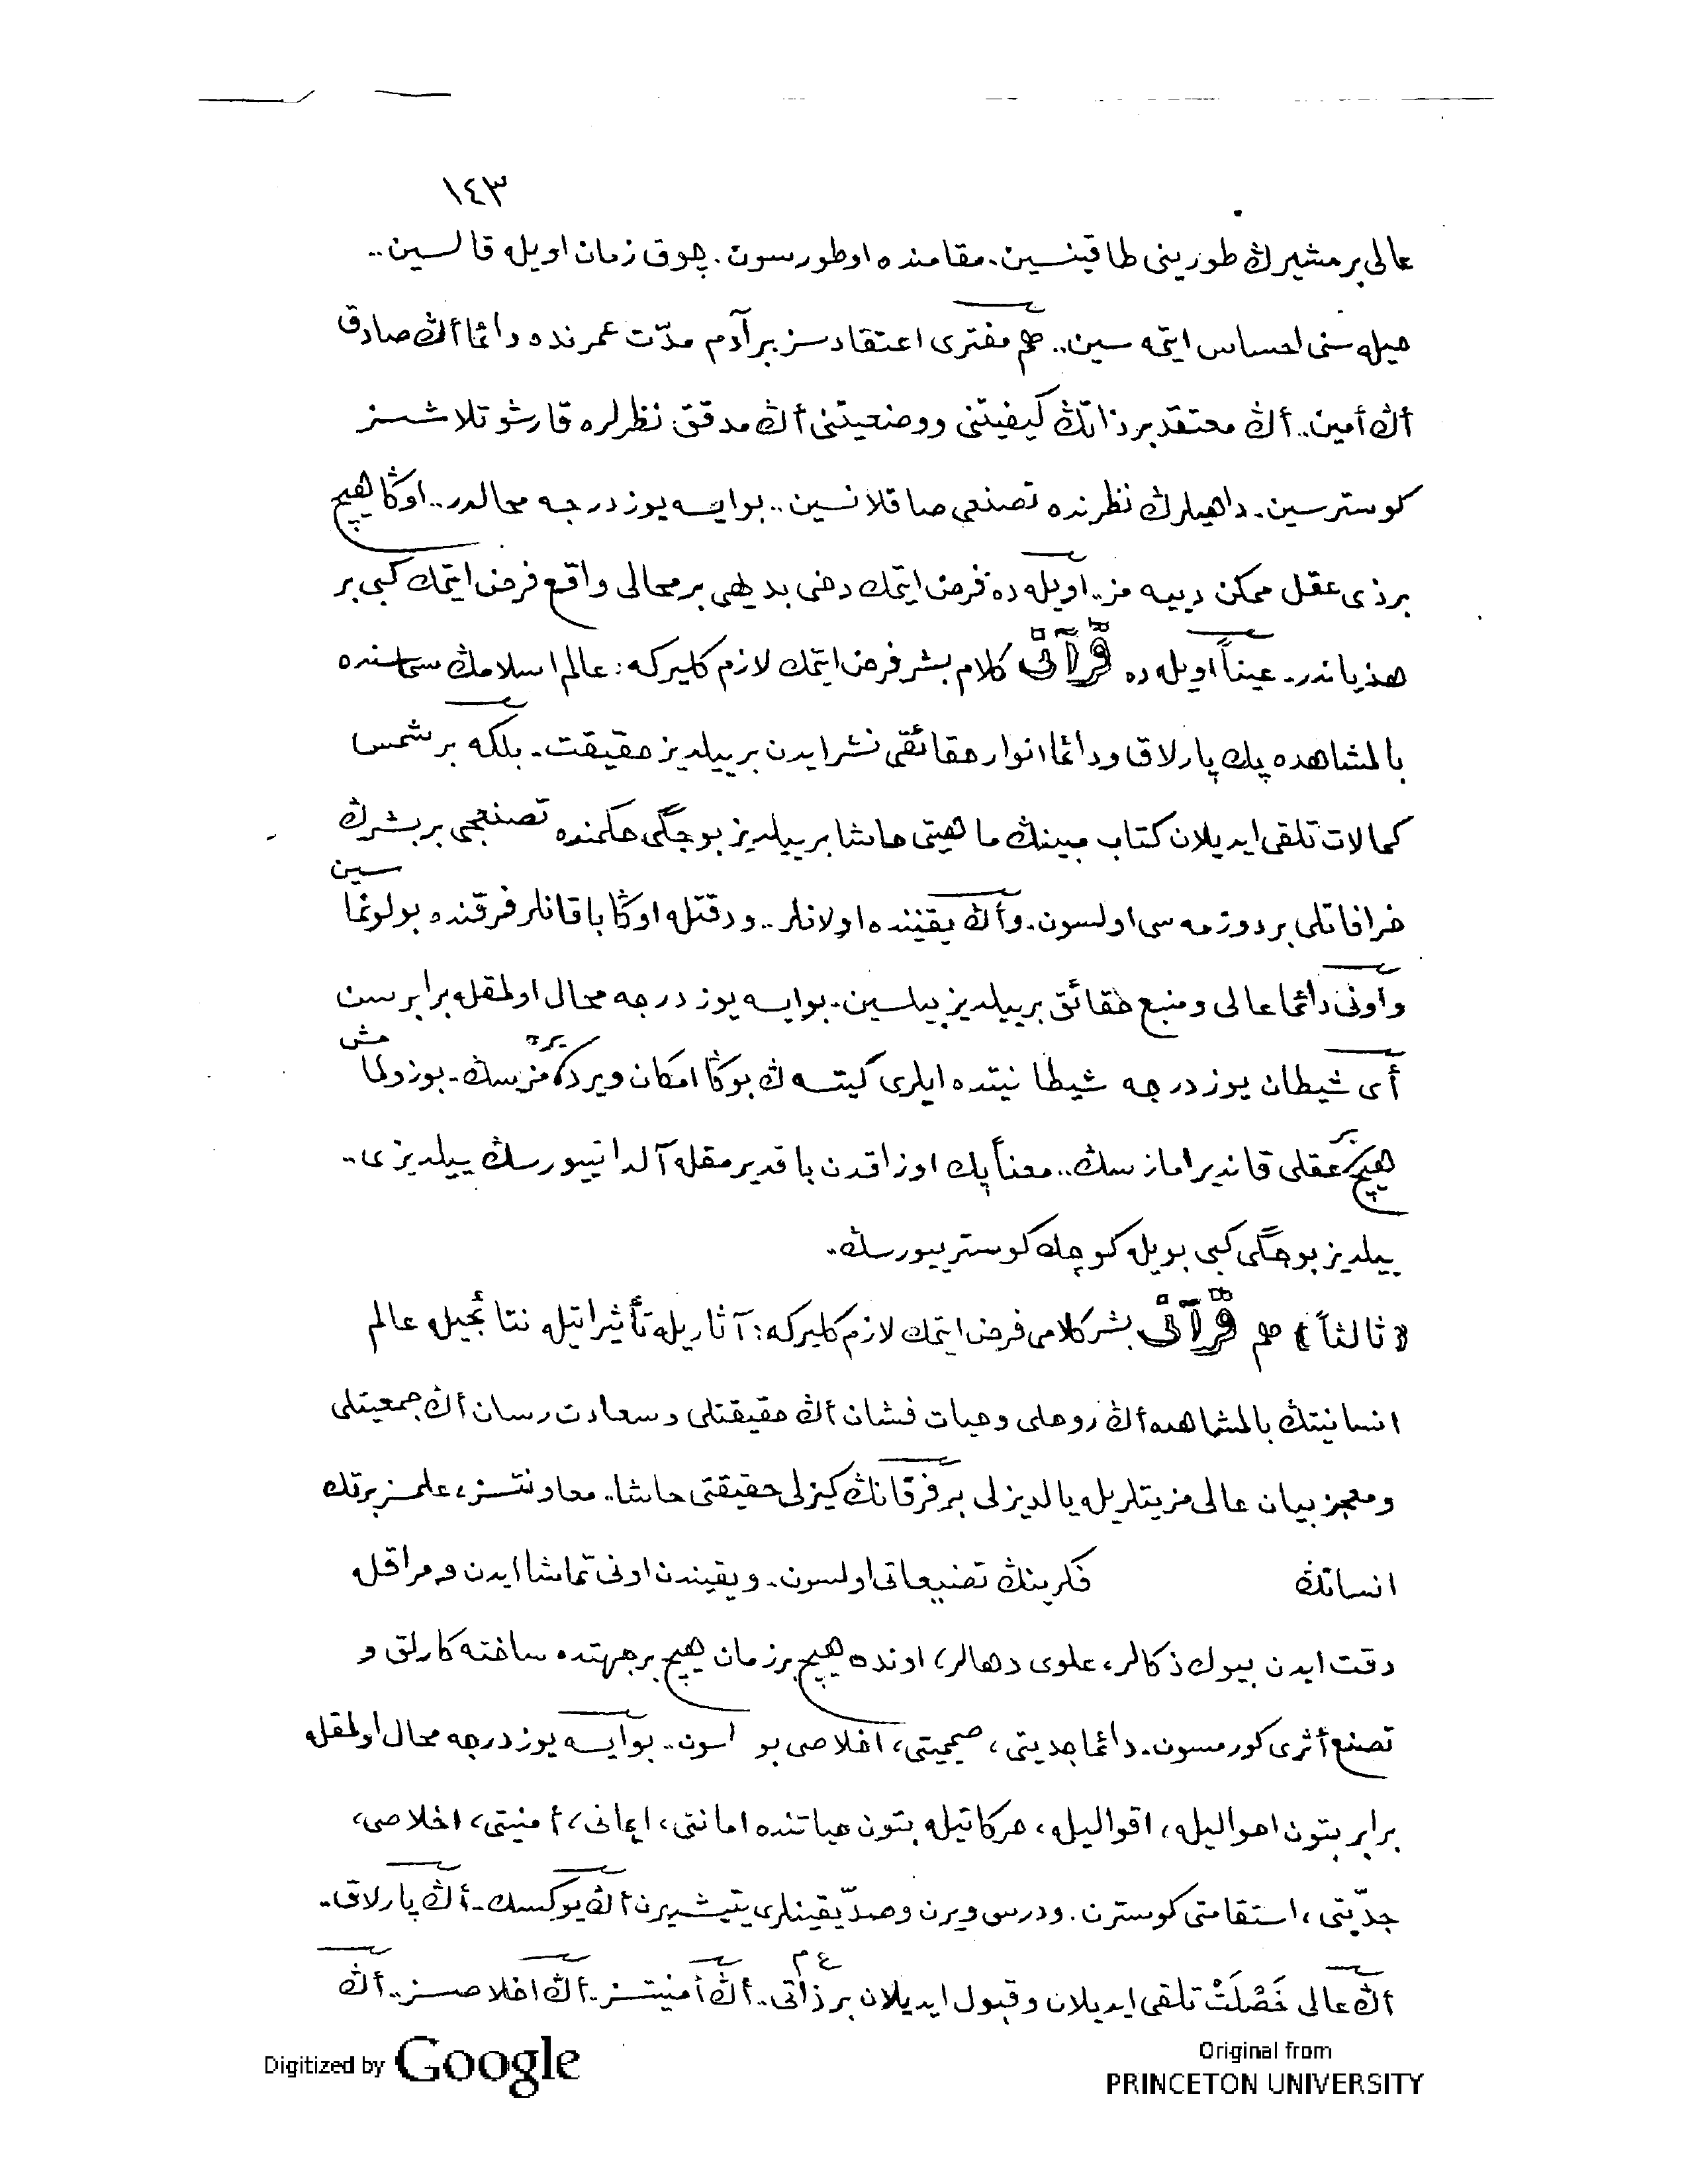 ١٤٣
عالی بر مشیرڭ طورینی طاقینسین. مقامنده اوطورسون. چوق زمان اویله قالسین..
حیله سنی احساس ایتمه سین.. هم مفتری اعتقادسز بر آدم مدّت عمرنده دائما أڭ صادق
أڭ أمین.. أڭ معتقد بر ذاتڭ کیفیتنی و وضعیتنی أڭ مدقق نظرلره قارشو تلاشسز
کوسترسین. داهیلرڭ نظرنده تصنعی صاقلانسین.. بو ایسه یوز درجه محالدر.. اوڭا هیچ
بر ذی عقل ممکن دییه مز.. اویله ده فرض ایتمك دخی بدیهی بر محالی واقع فرض ایتمك کبی بر
هذیاندر. عیناً اویله ده قُرْآنْی کلام بشر فرض ایتمك لازم کلیرکه: عالم اسلامڭ سماسنده
بالمشاهده پك پارلاق و دائما انوار حقائقی نشر ایدن بر ییلدیز حقیقت. بلکه بر شمس
کمالات تلقی ایدیلان کتاب مبینڭ ماهیتی حاشا بر ییلدیز بوجگی حکمنده تصنعجی بر بشرڭ
خرافاتلی بر دوزمه سی اولسون. وأڭ یقیننده اولانلر.. و دقتله اوڭا باقانلر فرقنده بولونما سین
و اونی دائما عالی و منبع حقائق بر ییلدیز بیلسین. بو ایسه یوز درجه محال اولمقله برابر سن
أی شیطان یوز درجه شیطانیتده ایلری کیتسه ڭ بوڭا امکان ویردیره مزسڭ. بوزولمامش
هیچ بر عقلی قاندیراماز سڭ.. معناً پك اوزاقدن باقدیرمقله آلداتییورسڭ ییلدیزی..
ییلدیز بوجگی کبی بویله کوچك کوستریيورسڭ..
﴿ثالثاً﴾ هم قُرْآنْی بشر کلامی فرض ایتمك لازم کلیرکه: آثاریله تأثیراتیله نتائجیله عالم
انسانیتڭ بالمشاهده أڭ روحلی و حیات فشان أڭ حقیقتلی و سعادت رسان أڭ جمعیتلی
و معجز بیان عالی مزیتلریله یالدیزلی بر فرقانڭ کیزلی حقیقتی حاشا.. معاونتسز، علمسز بر تك
انسانڭ فکرینڭ تصنیعاتی اولسون. و یقیندن اونی تماشا ایدن و مراقله
دقت ایدن بیوك ذکالر، علوی دهالر، اونده هیچ بر زمان هیچ بر جهتده ساخته کارلق و
تصنع أثری کورمسون. دائما جدیتی، صمیمیتی، اخلاصی بو لسون.. بو ایسه یوز درجه محال اولمقله
برابر بتون احوالیله، اقوالیله، حرکاتیله بتون حیاتنده امانتی، ایمانی، أمنیتی، اخلاصی،
جدّیتی، استقامتی کوسترن. و درس ویرن و صدّیقینلری یتیشدیرن أڭ یوکسك. أڭ پارلاق.
أڭ عالی خَصْلَتْ تلقی ایدیلان و قبول ایدیلان بر ذاتی ع م.. أڭ أمنیتسز.. أڭ اخلاصسز.. أڭ
Digitized by Google
Original from
PRINCETON UNIVERSITY